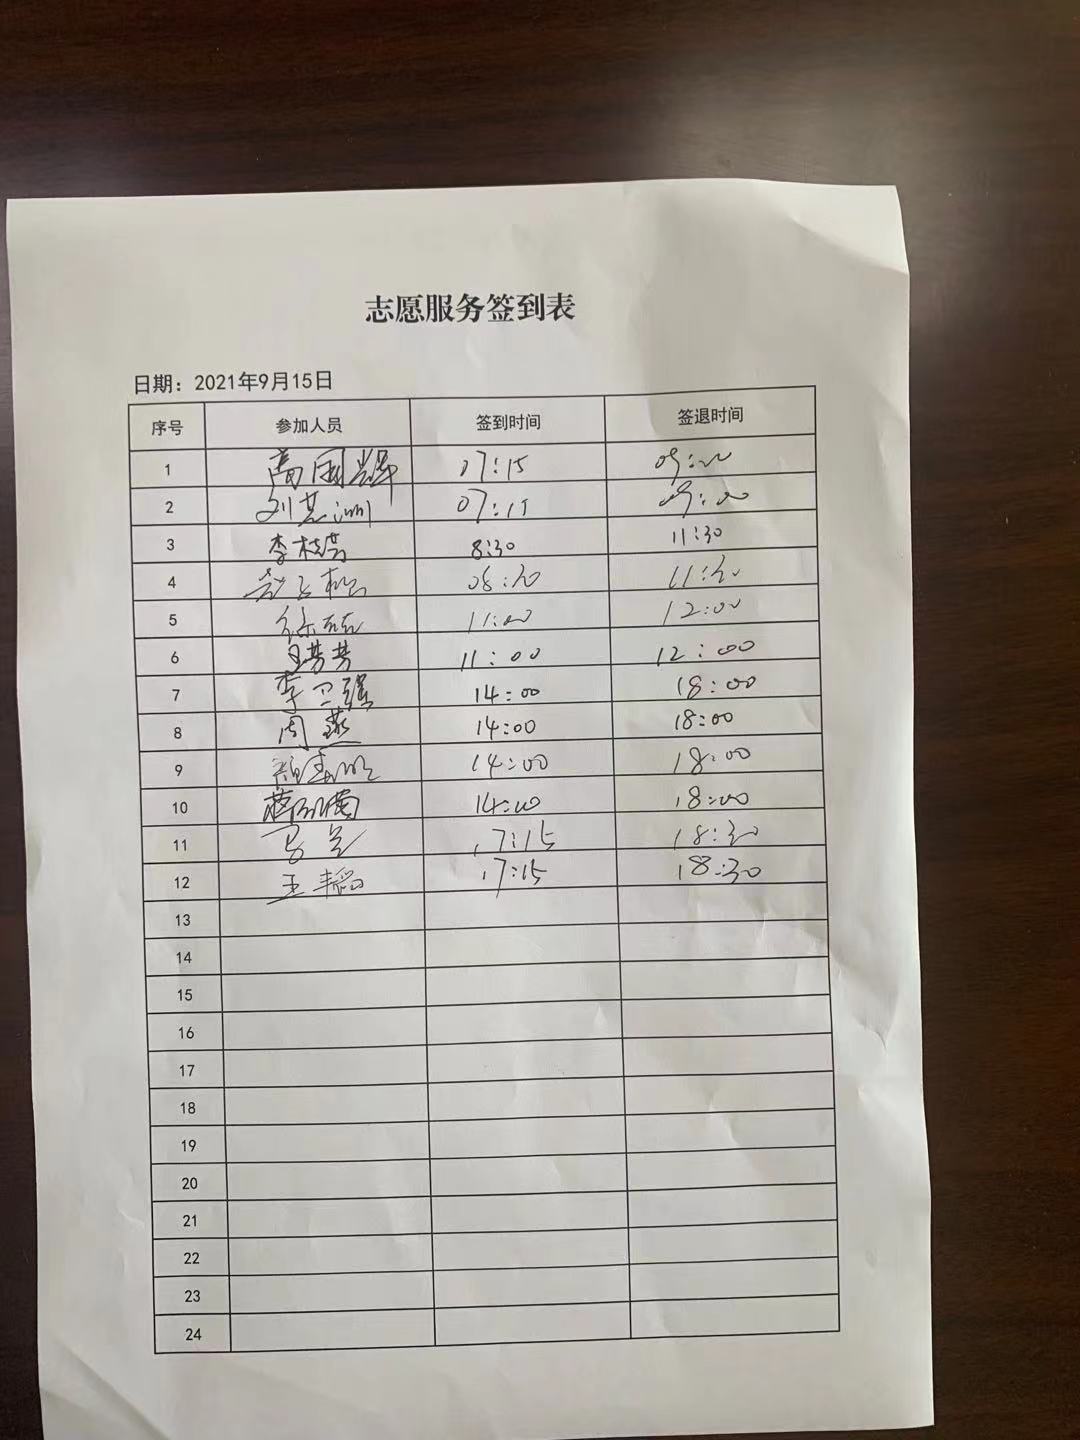 志愿服务签到表
日期：2021年9月15日
序号 参加人员 签到时间 签退时间
1 高国辉 07:15 09:00
2 刘其洲 07:15 09:00
3 李桂芳 8:30 11:30
4 08:30 11:30
5 徐 11:00 12:00
6 王芳芳 11:00 12:00
7 李卫强 14:00 18:00
8 周燕 14:00 18:00
9 14:00 18:00
10 蒋 14:00 18:00
11 17:15 18:30
12 王韬 17:15 18:30
13
14
15
16
17
18
19
20
21
22
23
24